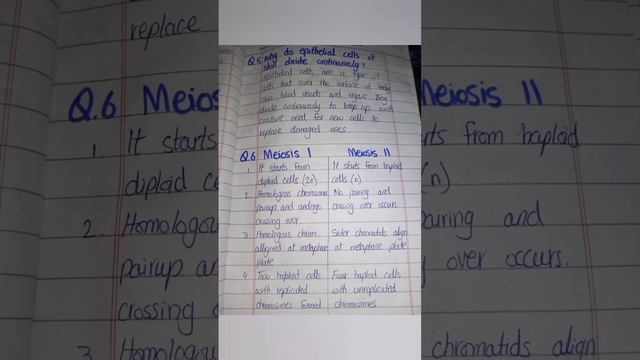 replace
Q.6 Meios
1. It starts
diploid ce
2. Homologou
pairup an
crossing o
3 Homolog
Q.5 Why do epithelial cells of
skin divide continuously?
Epithelial cells are a type of
cells that cover the surface of body
skin blood vessels and organs. They
divide continuously to keep up with
constant need for new cells to
replace damaged ones.
Q.6 Meiosis I Meiosis II
1. It starts from It starts from haploid
diploid cells (2n) cells (n)
2. Homologous chromosome No pairing and
pairup and undergo crossing over occurs.
crossing over
3. Homologous chrom. Sister chromatids align
alligned at metaphase at metaphase plate
plate
4. Two haploid cells Four haploid cells
with replicated with unreplicated
chromosomes formed chromosomes.
Meiosis II
rts from haploid
(n)
pairing and
over occurs.
chromatids align